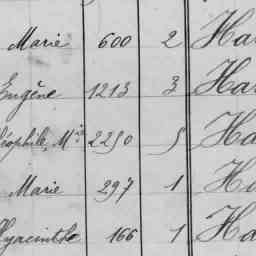 Marie 600 2 Ha
Eugène 1213 3 Ha
éophile, Mie 2250 5 Ha
Marie 297 1 Ha
Hyacinthe 166 1 Ha